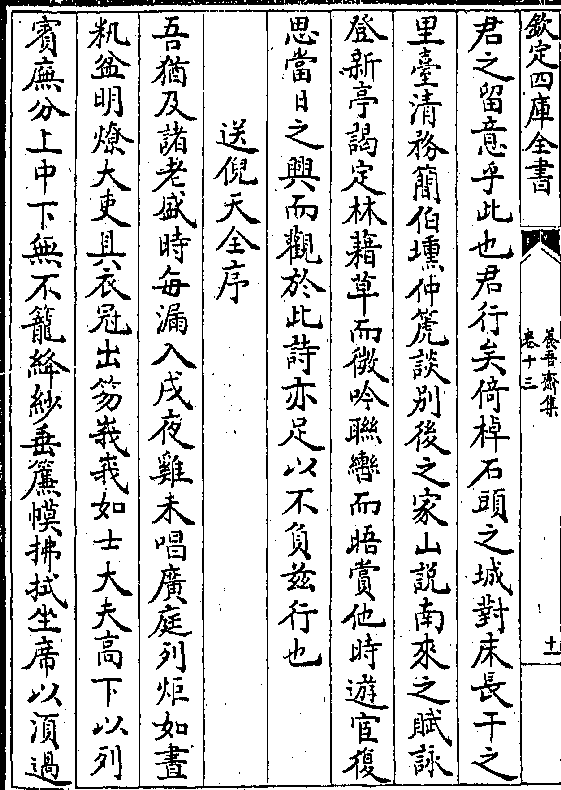 欽定四庫全書
養吾齋集
卷十三
十一
君之留意乎此也君行矣倚棹石頭之城對床長干之
里臺清務簡伯壎仲箎談别後之家山説南來之賦詠
登新亭謁定林藉草而微吟聯轡而晤賞他時遊宦復
思當日之興而觀於此詩亦足以不負兹行也
送倪天全序
吾猶及諸老盛時每漏入戌夜雞未唱廣庭列炬如晝
籸盆明燎大吏具衣冠出笏峩峩如士大夫高下以列
賓廡分上中下無不籠絳紗垂簾幙拂拭坐席以湏過